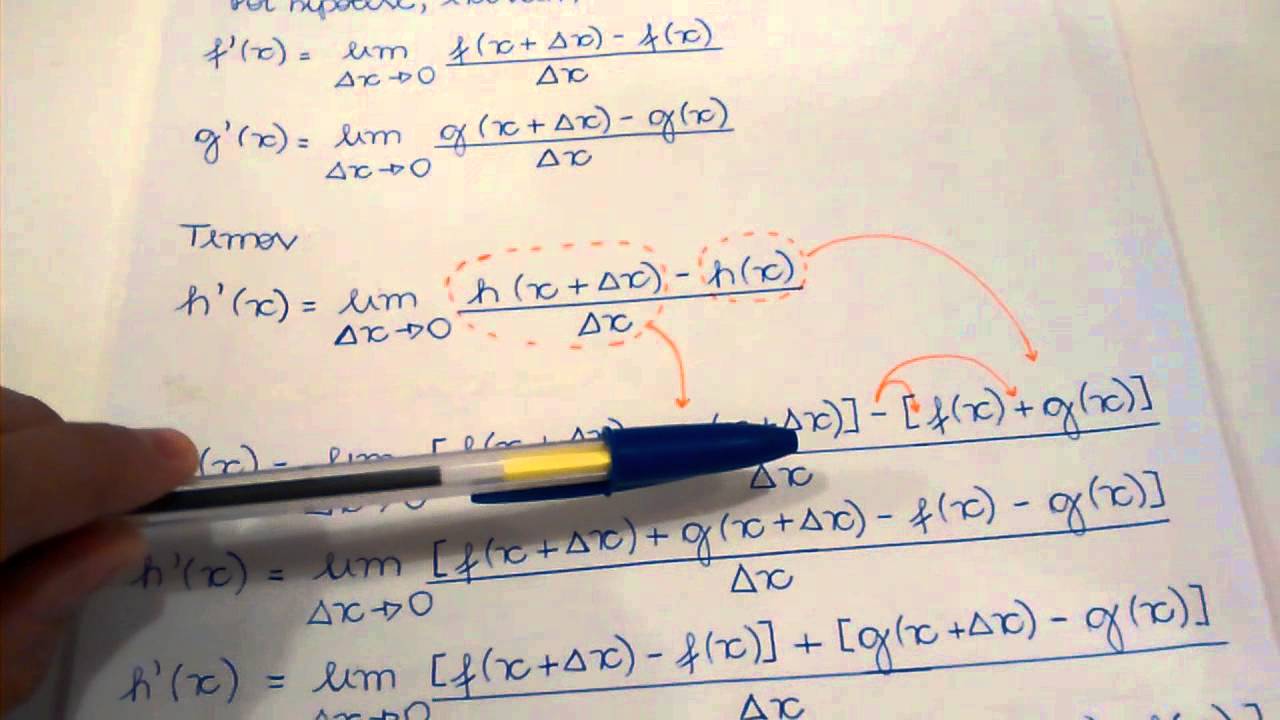 f'(x) = lim Δx→0 f(x + Δx) - f(x) / Δx
g'(x) = lim Δx→0 g(x + Δx) - g(x) / Δx
Temos
h'(x) = lim Δx→0 h(x + Δx) - h(x) / Δx
Δx)] - [f(x) + g(x)] / Δx
h'(x) = lim Δx→0 [f(x + Δx) + g(x + Δx) - f(x) - g(x)] / Δx
h'(x) = lim Δx→0 [f(x + Δx) - f(x)] + [g(x + Δx) - g(x)] / Δx